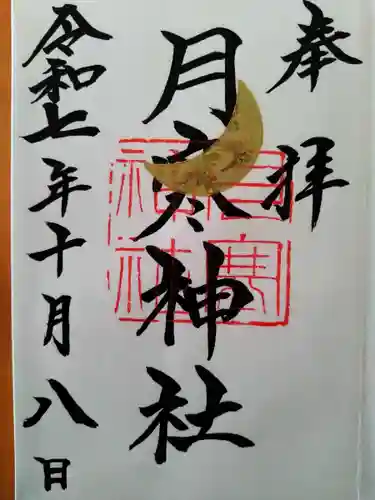 奉拝
月寒神社
令和七年十月八日
月寒
神社